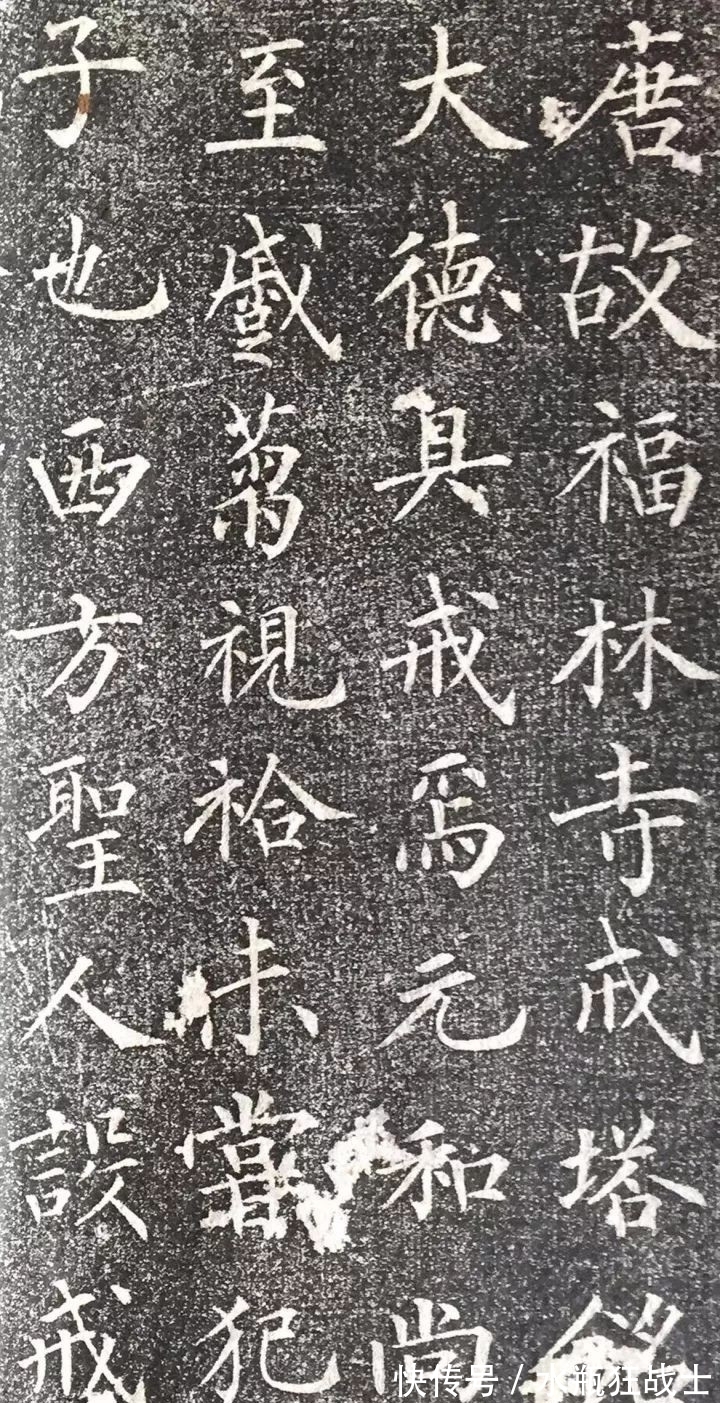 唐故福林寺戒塔銘
大德具戒焉元和尚
至感万視袷未嘗犯
子也西方聖人設戒
快传号／水瓶狂战士